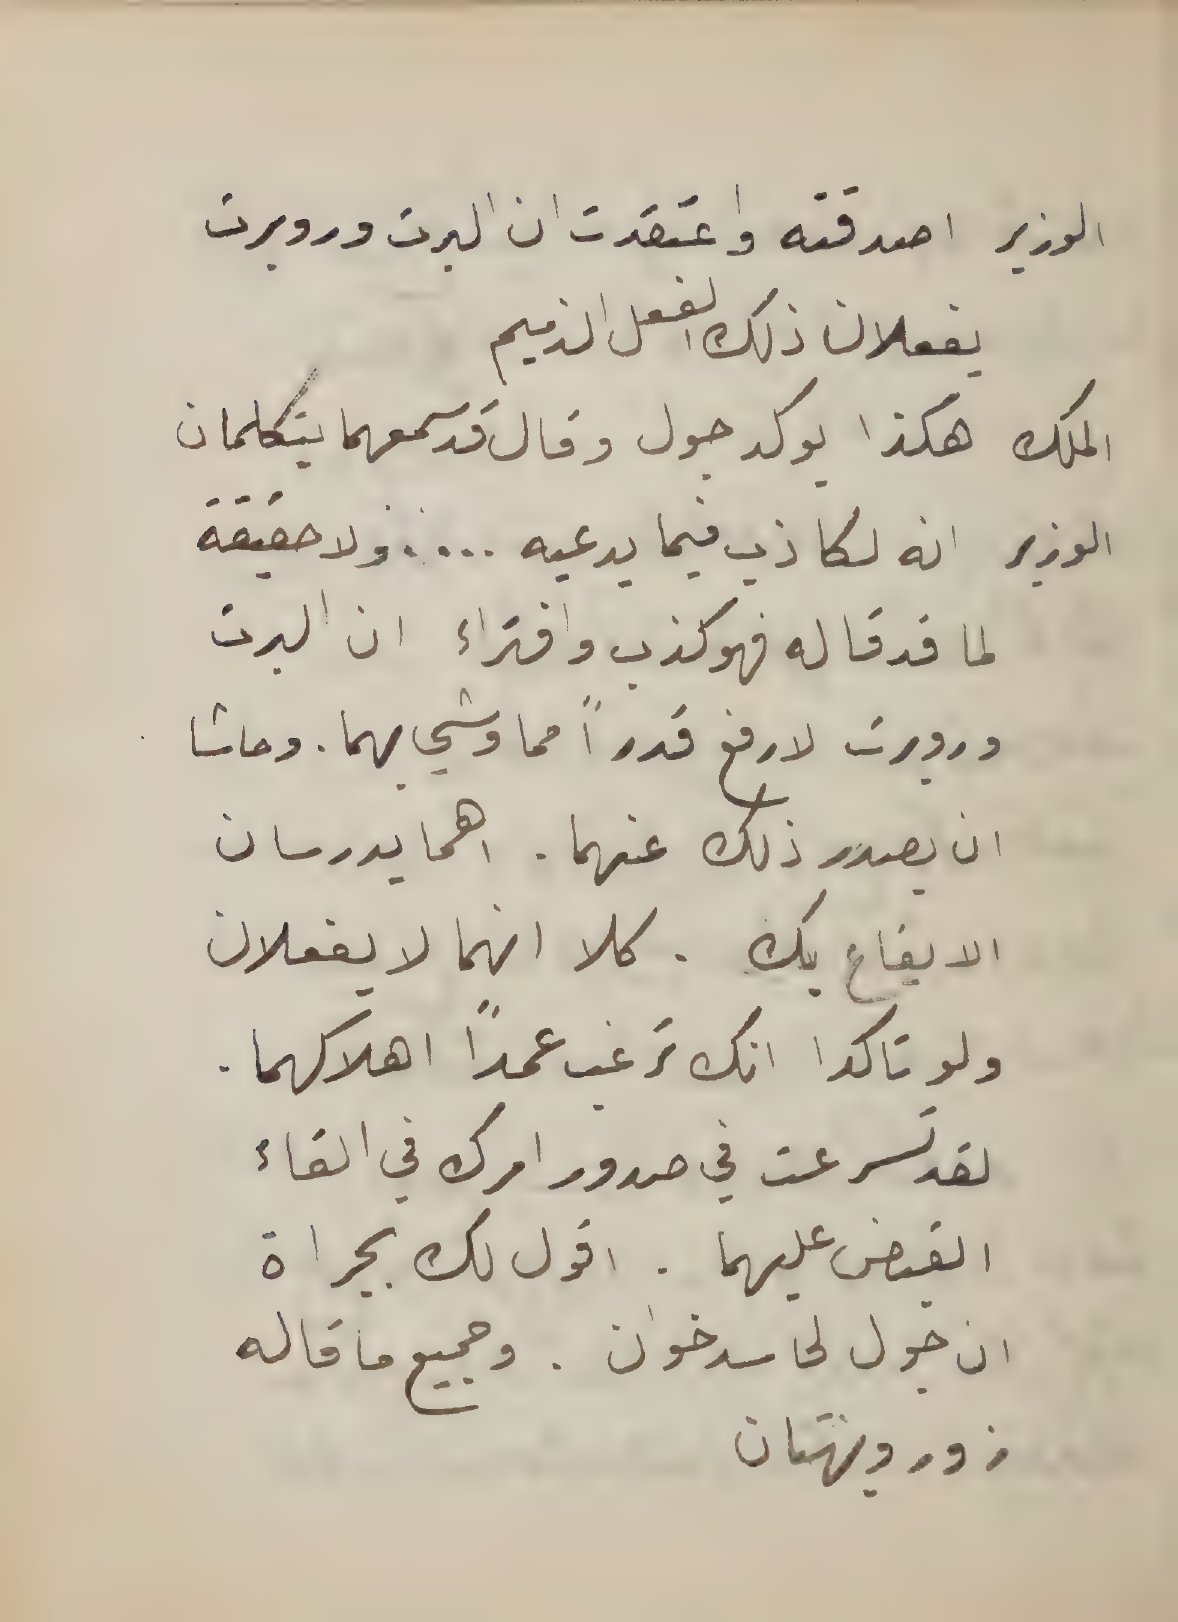 الوزير اصدقته واعتقدت ان البرت وروبرت
يفعلان ذلك الفعل الذميم
الملك هكذا يوكد جول وقال قد سمعهما يتكلمان
الوزير انه لكاذب فيما يدعيه ..... ولا حقيقة
لما قد قاله فهو كذب وافتراء ان البرت
وروبرت لارفع قدراً مما وشي بهما . وحاشا
ان يصدر ذلك عنهما . اهما يدرسان
الايقاع بك . كلا انهما لا يفعلان
ولو تاكدا انك ترغب عمداً اهلاكهما .
لقد تسرعت في صدور امرك في القاء
القبض عليهما . اقول لك بجراة
ان جول لحاسد خوان . وجميع ما قاله
زور وبهتان